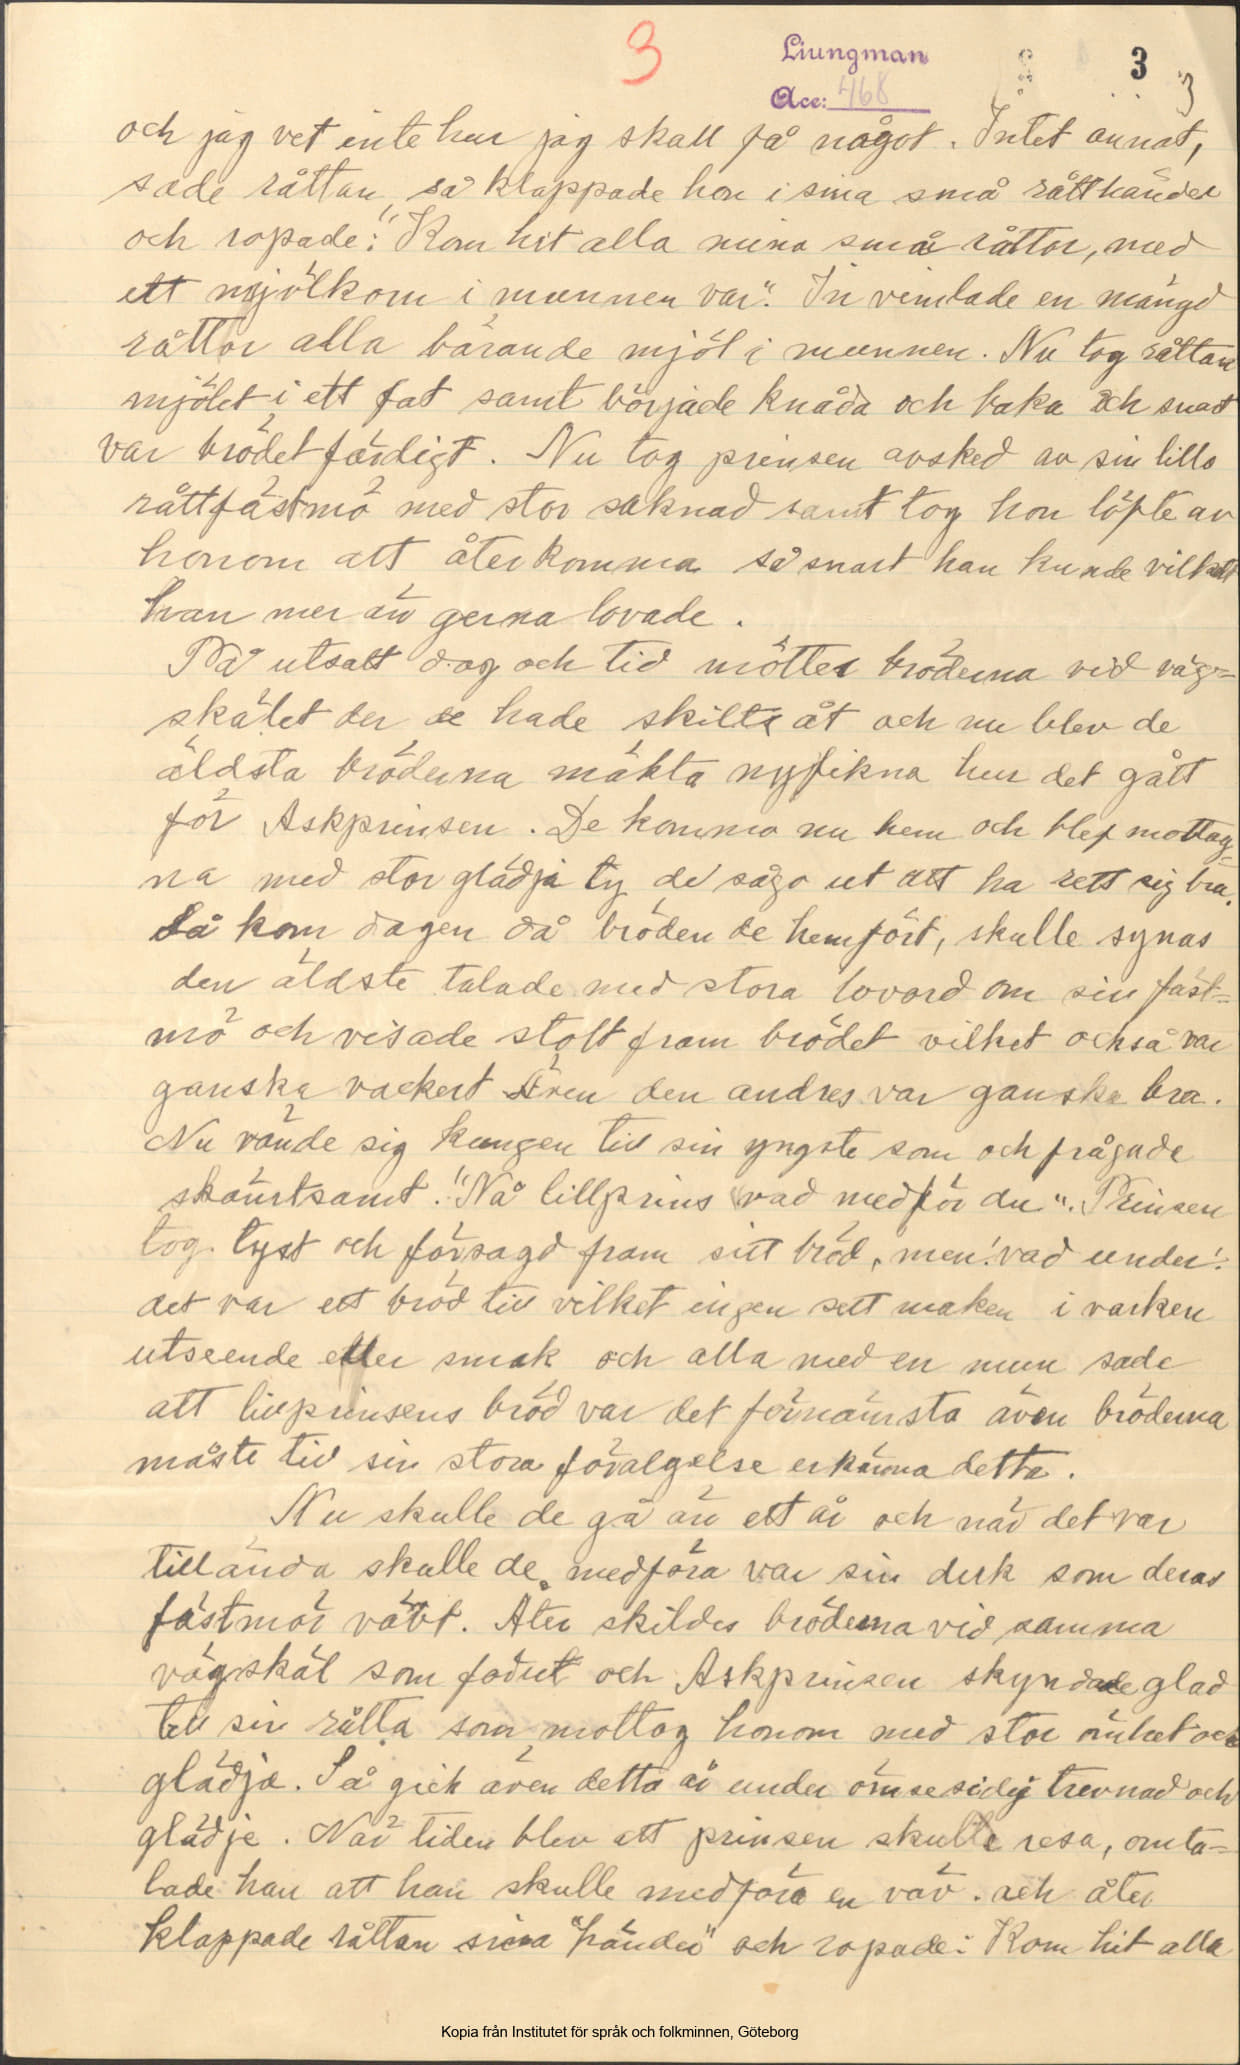 3
Liungman
Acc: 468
3
3
och jag vet inte hur jag skall få något. Intet annat,
sade råttan, så klappade hon i sina små råtthänder
och ropade: "Kom hit alla mina små råttor, med
ett mjölkorn i munnen var". In vimlade en mängd
råttor alla bärande mjöl i munnen. Nu tog råttan
mjölet i ett fat samt började knåda och baka och snart
var brödet färdigt. Nu tog prinsen avsked av sin lilla
råttfästmö med stor saknad samt tog hon löfte av
honom att återkomma så snart han kunde vilket
han mer än gerna lovade.
På utsatt dag och tid möttes bröderna vid väg=
skälet der de hade skilts åt och nu blev de
äldsta bröderna mäkta nyfikna hur det gått
för Askprinsen. De kommo nu hem och blef mottag-
na med stor glädja ty de sågo ut att ha rett sig bra.
Så kom dagen då bröden de hemfört, skulle synas
den äldste talade med stora lovord om sin fäst=
mö och visade stolt fram brödet vilket också var
ganska vackert Även den andres var ganska bra.
Nu vände sig kungen till sin yngste son och frågade
skämtsamt. "Nå lillprins vad medför du". Prinsen
tog tyst och försagd fram sitt bröd, men! vad under!
det var ett bröd till vilket ingen sett maken i varken
utseende eller smak och alla med en mun sade
att lillprinsens bröd var det förnämsta även bröderna
måste till sin stora förargelse erkänna detta.
Nu skulle de gå än ett år och när det var
tillända skulle de medföra var sin duk som deras
fästmör vävt. Åter skildes bröderna vid samma
vägskäl som förut och Askprinsen skyndade glad
till sin råtta som mottog honom med stor ömhet och
glädja. Så gick även detta år under ömsesidig trevnad och
glädje. När tiden blev att prinsen skulle resa, omta=
lade han att han skulle medföra en väv. och åter
klappade råttan sina "händer" och ropade: Kom hit alla
Kopia från Institutet för språk och folkminnen, Göteborg